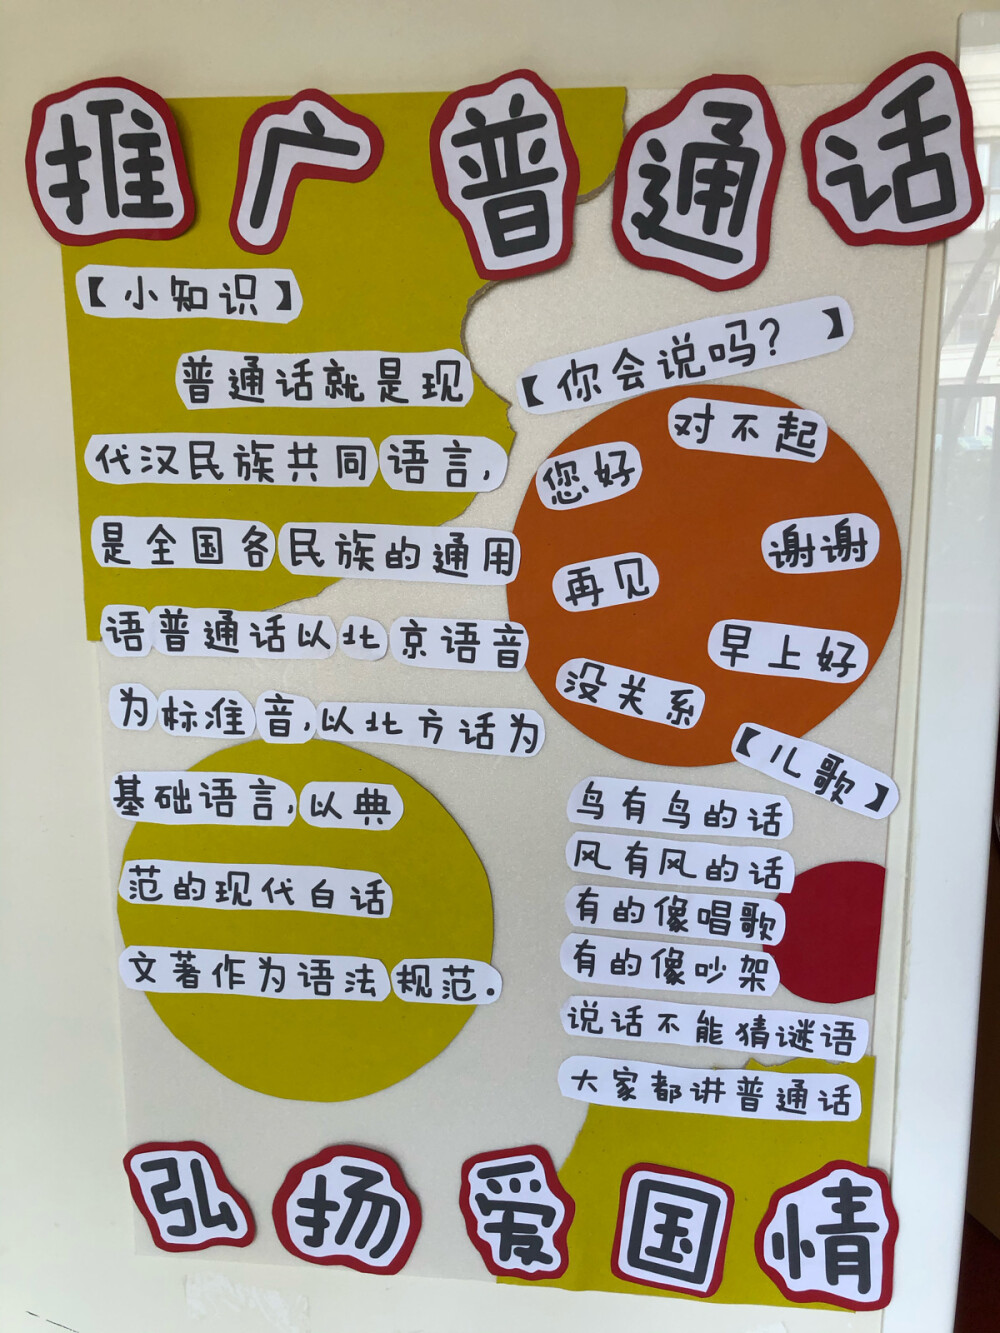 推广普通话
【小知识】
普通话就是现
代汉民族共同语言,
是全国各民族的通用
语普通话以北京语音
为标准音,以北方话为
基础语言,以典
范的现代白话
文著作为语法规范.
【你会说吗? 】
对不起
您好
谢谢
再见
早上好
没关系
【儿歌】
鸟有鸟的话
风有风的话
有的像唱歌
有的像吵架
说话不能猜谜语
大家都讲普通话
弘扬爱国情